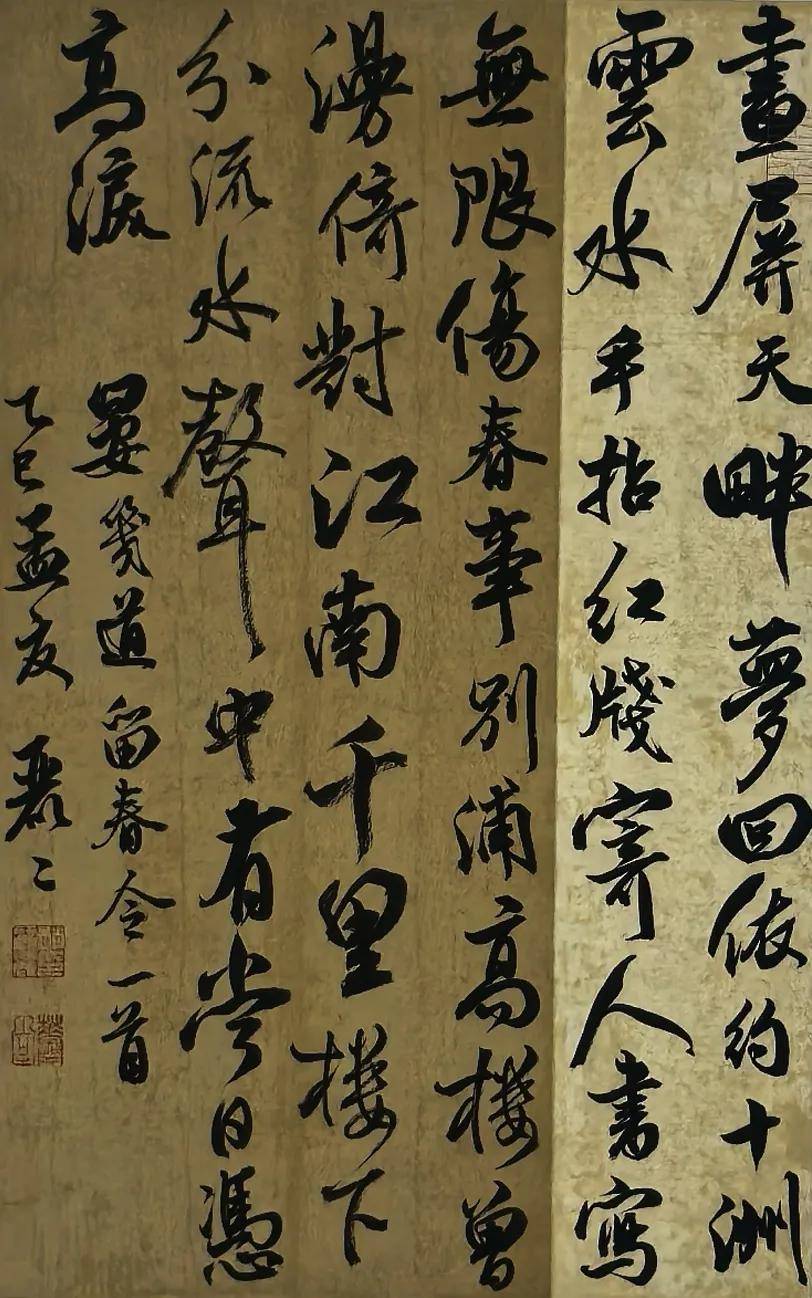 畫屏天畔夢回依約十洲
雲水手拈紅牋寄人書寫
無限傷春事別浦高樓曾
漫倚對江南千里樓下
分流水聲中有當日憑
高淚
晏幾道留春令一首
乙巳孟夏